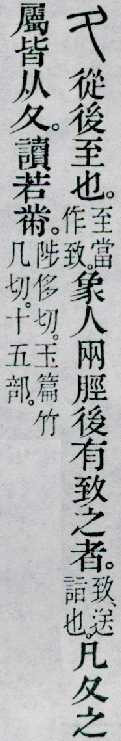 夂從後至也。至當作致。象人兩脛後有致之者。致、送詣也。凡夂之
屬皆从夂。讀若黹。陟侈切。玉篇竹几切。十五部。